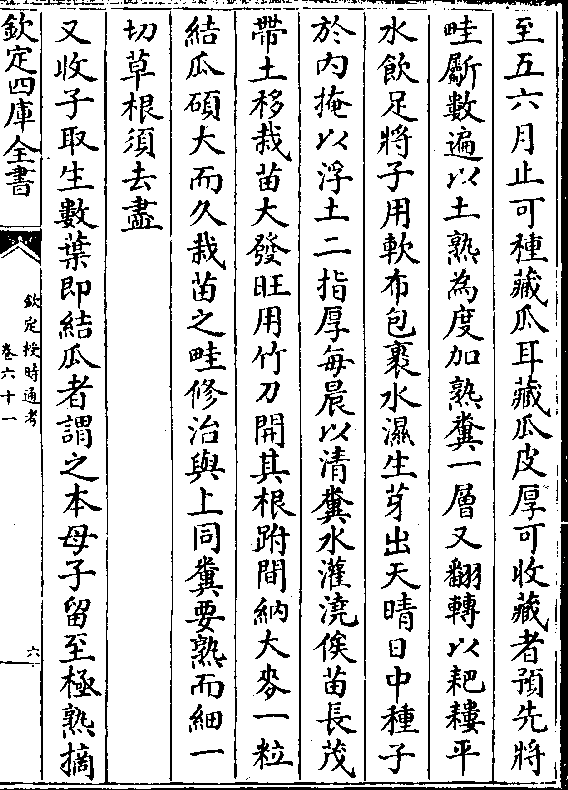 至五六月止可種藏瓜耳藏瓜皮厚可收藏者預先將
畦劚數遍以土熟為度加熟糞一層又翻轉以耙耬平
水飲足將子用軟布包裹水濕生芽出天晴日中種子
於内掩以浮土二指厚每晨以清糞水灌澆俟苗長茂
帶土移栽苗大發旺用竹刀開其根跗間納大麥一粒
結瓜碩大而久栽苗之畦修治與上同糞要熟而細一
切草根須去盡
又收子取生數葉即結瓜者謂之本母子留至極熟摘
欽定四庫全書
欽定授時通考
卷六十一
六